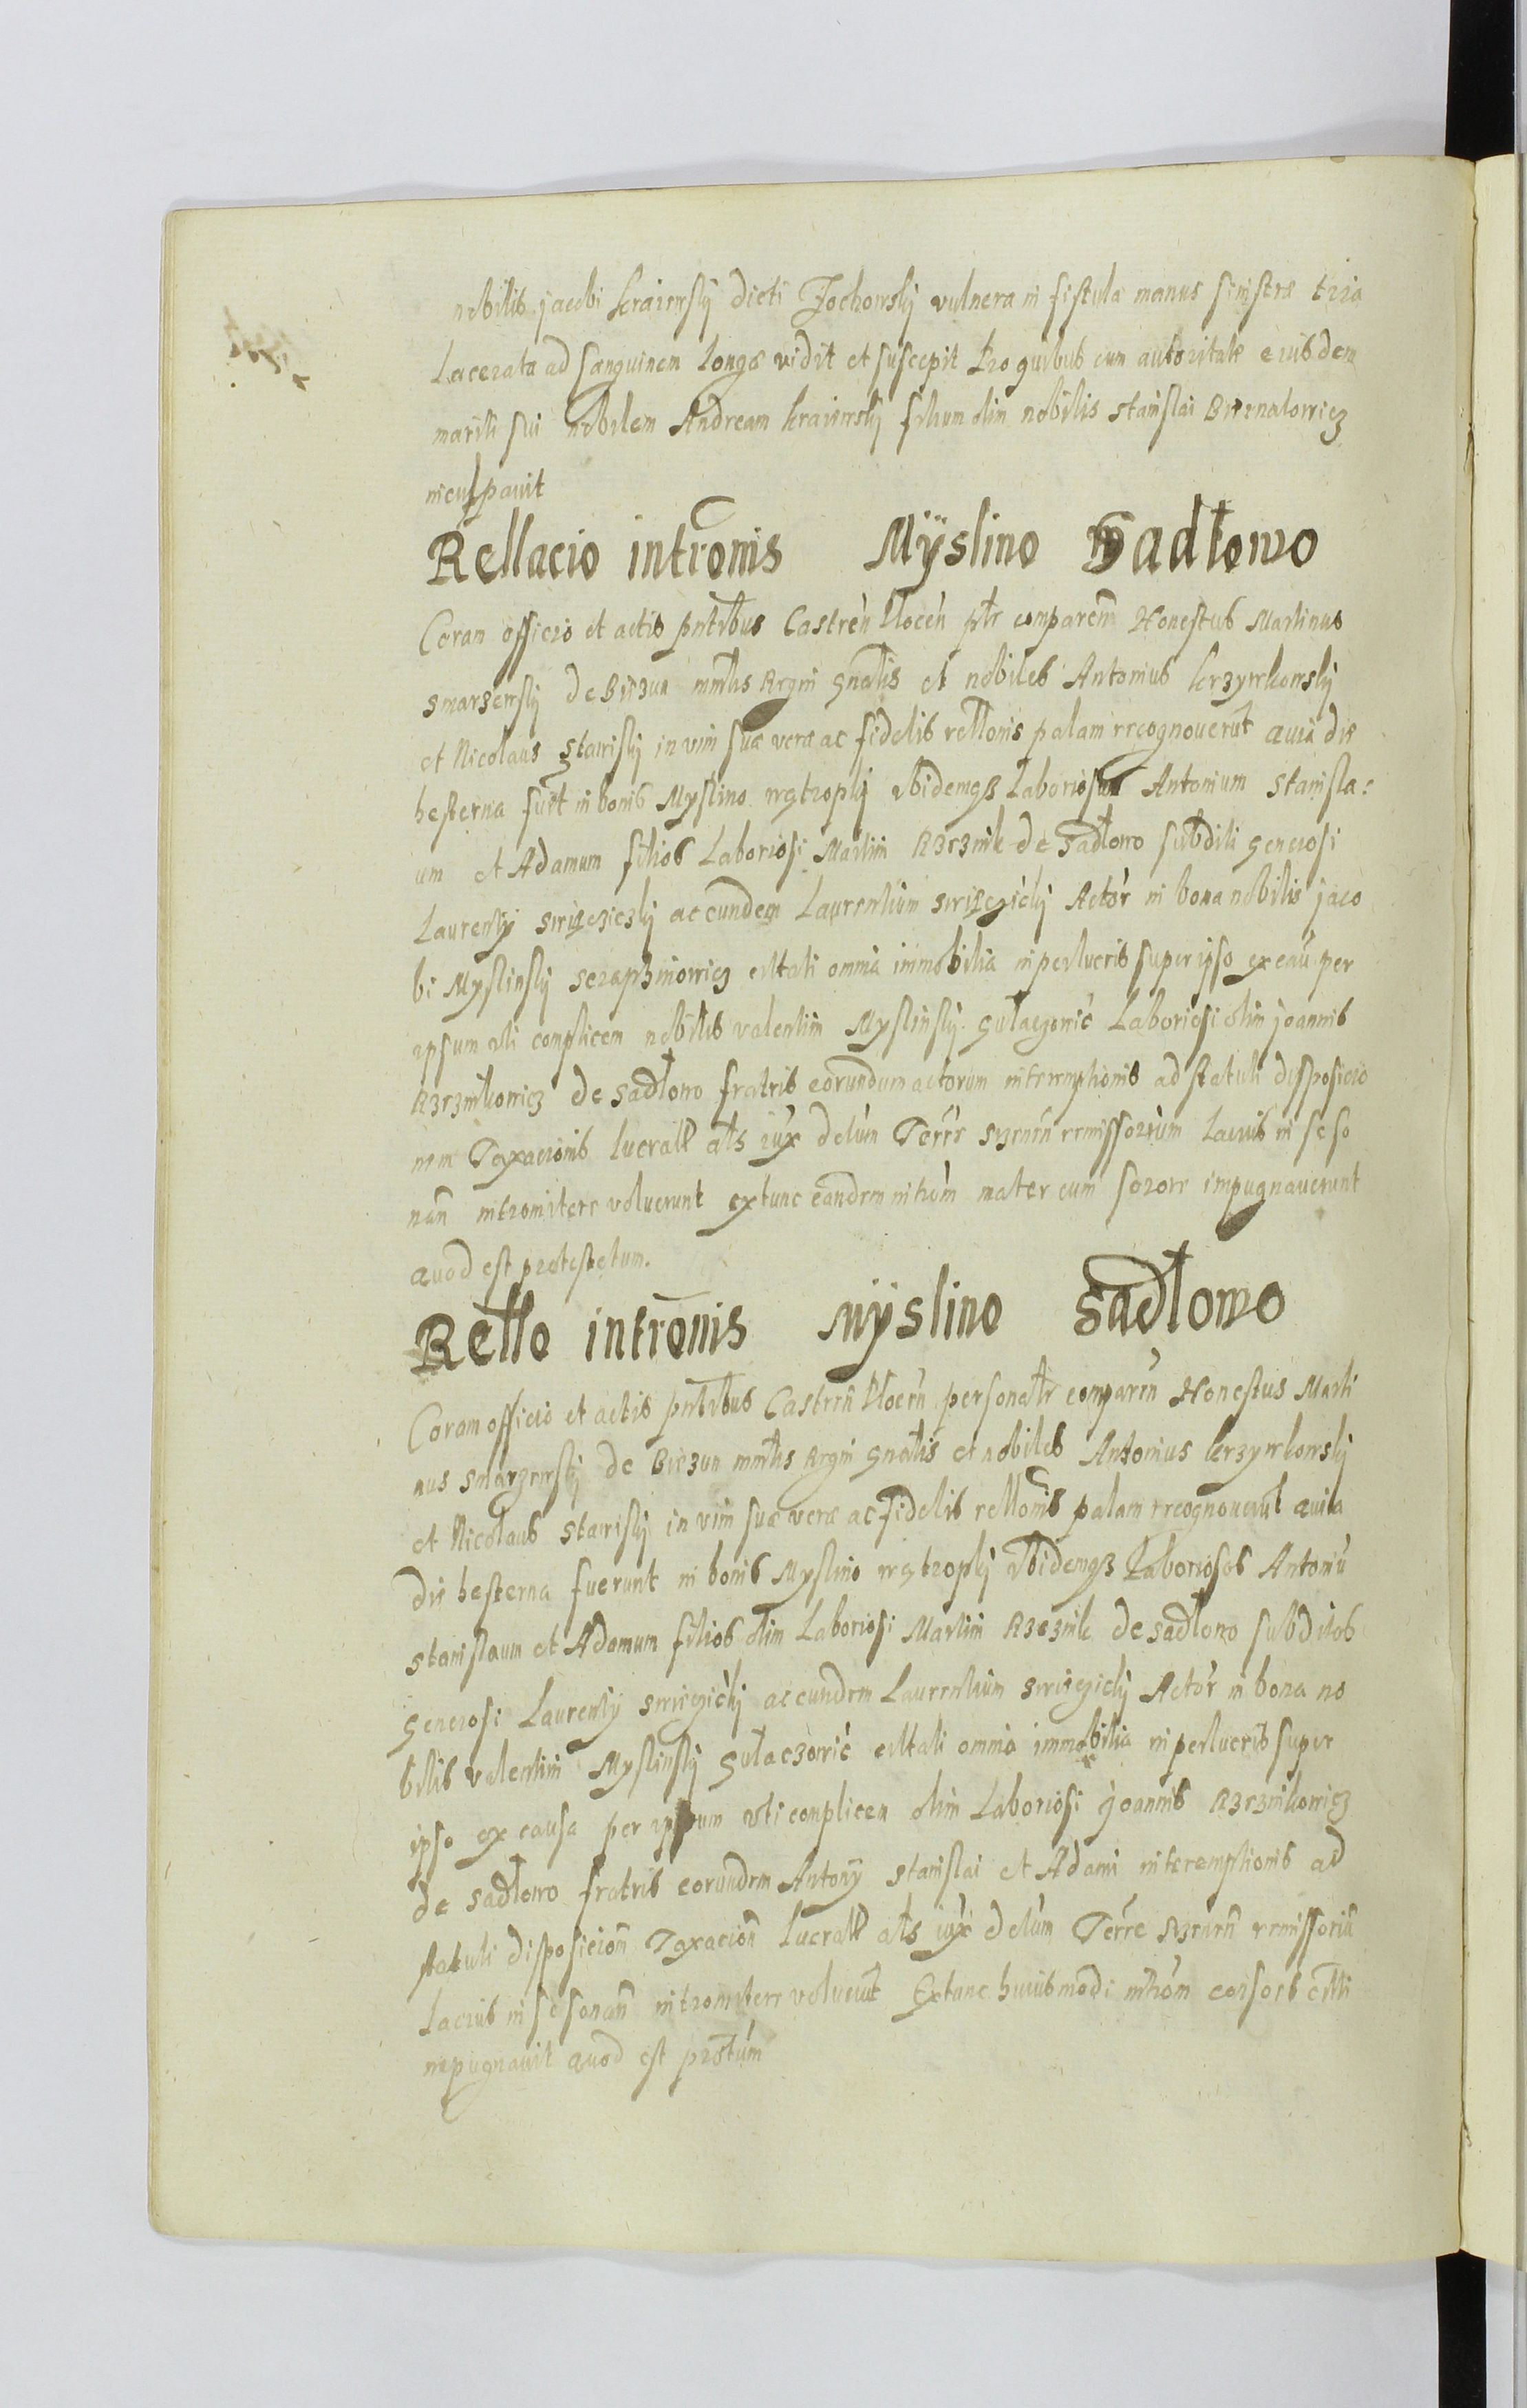 nobilis jacobi kraiewskj dicti Jochowskj vulnera in fistula manus sinistræ tria
Lacerata ad sanguinem longa vidit et suscepit Pro quibus eum autoritate eiusdem
mariti sui nobilem Andream kraiewskj filium olim nobilis stanislai Biernatowicz
inculpauit
Rellacio intronis Mÿslino Sadłowo
Coram officio et actis pntibus Castren Plocen pltr comparen Honestus Martinus
smarzewskj de Bieżun mnrlis Regni gnalis et nobiles Antonius krzywkowskj
et Nicolaus stawiskj in vim suæ veræ ac fidelis rellonis palam recognouerut quia die
hesterna fuit in bonis Myslino wgtropkj ibidemqz Laboriosum Antonium stanisla:
um et Adamum filios Laboriosi Martini Rzeznik de sadłowo subditi generosi
Laurentij swiżczickj ac eundem Laurentium swiżczickj Actor in bona nobilis jaco
bi Myslinskj seraphinowicz ettati omnia immobilia in perlucris super ipso ex cau per
ipsum uti complicem nobilis valentini Myslinskj gułaczowic Laboriosi olim joannis
Rzeznikowicz de sadłowo fratris eorundum actorum interemptionis ad statuti disposicio
nem Taxacionis lucrall als iux delum Terre szrnen remissorium Lacius in se so
nan intromitere voluerunt extunc eandem intrōm mater cum sorore impugnauerunt
quod est protestatum.
Rello intronis Mÿslino Sadłowo
Coram officio et actis pntibus Castren Plocen personaltr comparen Honestus Marti
nus smarzewskj de Bieżun mnrlis Regni gnalis et nobiles Antonius krzywkowskj
et Nicolaus stawiskj in vim suæ veræ ac fidelis rellonis palam recognouerut quia
die hesterna fuerunt in bonis Myslino wgtropkj ibidemqz Laboriosos Antoniu
stanislaum et Adamum filios olim Laboriosi Martini Rzeznik de sadłowo subditos
generosi Laurentij swiżczickj ac eundem Laurentium swiżczickj Actor in bona no
bilis valentini Myslinskj gułaczowic ettati omnia immobilia in perlucris super
ipso ex causa per ipsum uti complicem olim Laboriosi joannis Rzeznikowicz
de sadłowo fratris eorundem Antonij stanislai et Adami interemptionis ad
statuti disposicion Taxacion lucrall als iux delum Terre szrnen remissoriu
Lacius in se sonan intromitere voluerut Extunc huiusmodi intrōm consors
inpugnauit quod est protum